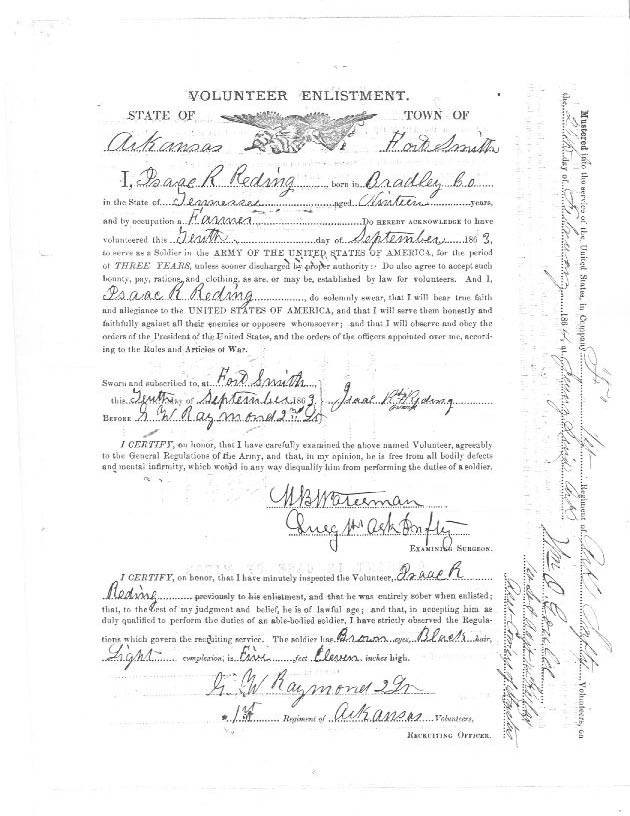 VOLUNTEER ENLISTMENT.
STATE OF TOWN OF
Arkansas Fort Smith
I, Isaac R Reding born in Bradley Co
in the State of Tennessee aged Ninteen years,
and by occupation a Farmer Do HEREBY ACKNOWLEDGE to have
volunteered this Tenth day of September 1863,
to serve as a Soldier in the ARMY OF THE UNITED STATES OF AMERICA, for the period
of THREE YEARS, unless sooner discharged by proper authority: Do also agree to accept such
bounty, pay, rations, and clothing, as are, or may be, established by law for volunteers. And I,
Isaac R Reding, do solemnly swear, that I will bear true faith
and allegiance to the UNITED STATES OF AMERICA, and that I will serve them honestly and
faithfully against all their enemies or opposers whomsoever; and that I will observe and obey the
orders of the President of the United States, and the orders of the officers appointed over me, accord-
ing to the Rules and Articles of War.
Sworn and subscribed to, at Fort Smith
this Tenth day of September 1863 Isaac R
BEFORE G W Raymond 2nd Lt
I CERTIFY, on honor, that I have carefully examined the above named Volunteer, agreeably
to the General Regulations of the Army, and that, in my opinion, he is free from all bodily defects
and mental infirmity, which would in any way disqualify him from performing the duties of a soldier.
EXAMINING SURGEON.
I CERTIFY, on honor, that I have minutely inspected the Volunteer, Isaac R
Reding previously to his enlistment, and that he was entirely sober when enlisted;
that, to the best of my judgment and belief, he is of lawful age; and that, in accepting him as
duly qualified to perform the duties of an able-bodied soldier, I have strictly observed the Regula-
tions which govern the recruiting service. The soldier has Brown eyes, Black hair,
Light complexion, is Five feet Eleven inches high.
G. W Raymond 2 Lt
1st Regiment of Arkansas Volunteers,
RECRUITING OFFICER.
Mustered into the service of the United States, in Company 1st Regiment of Volunteers, on
the day of 186 at